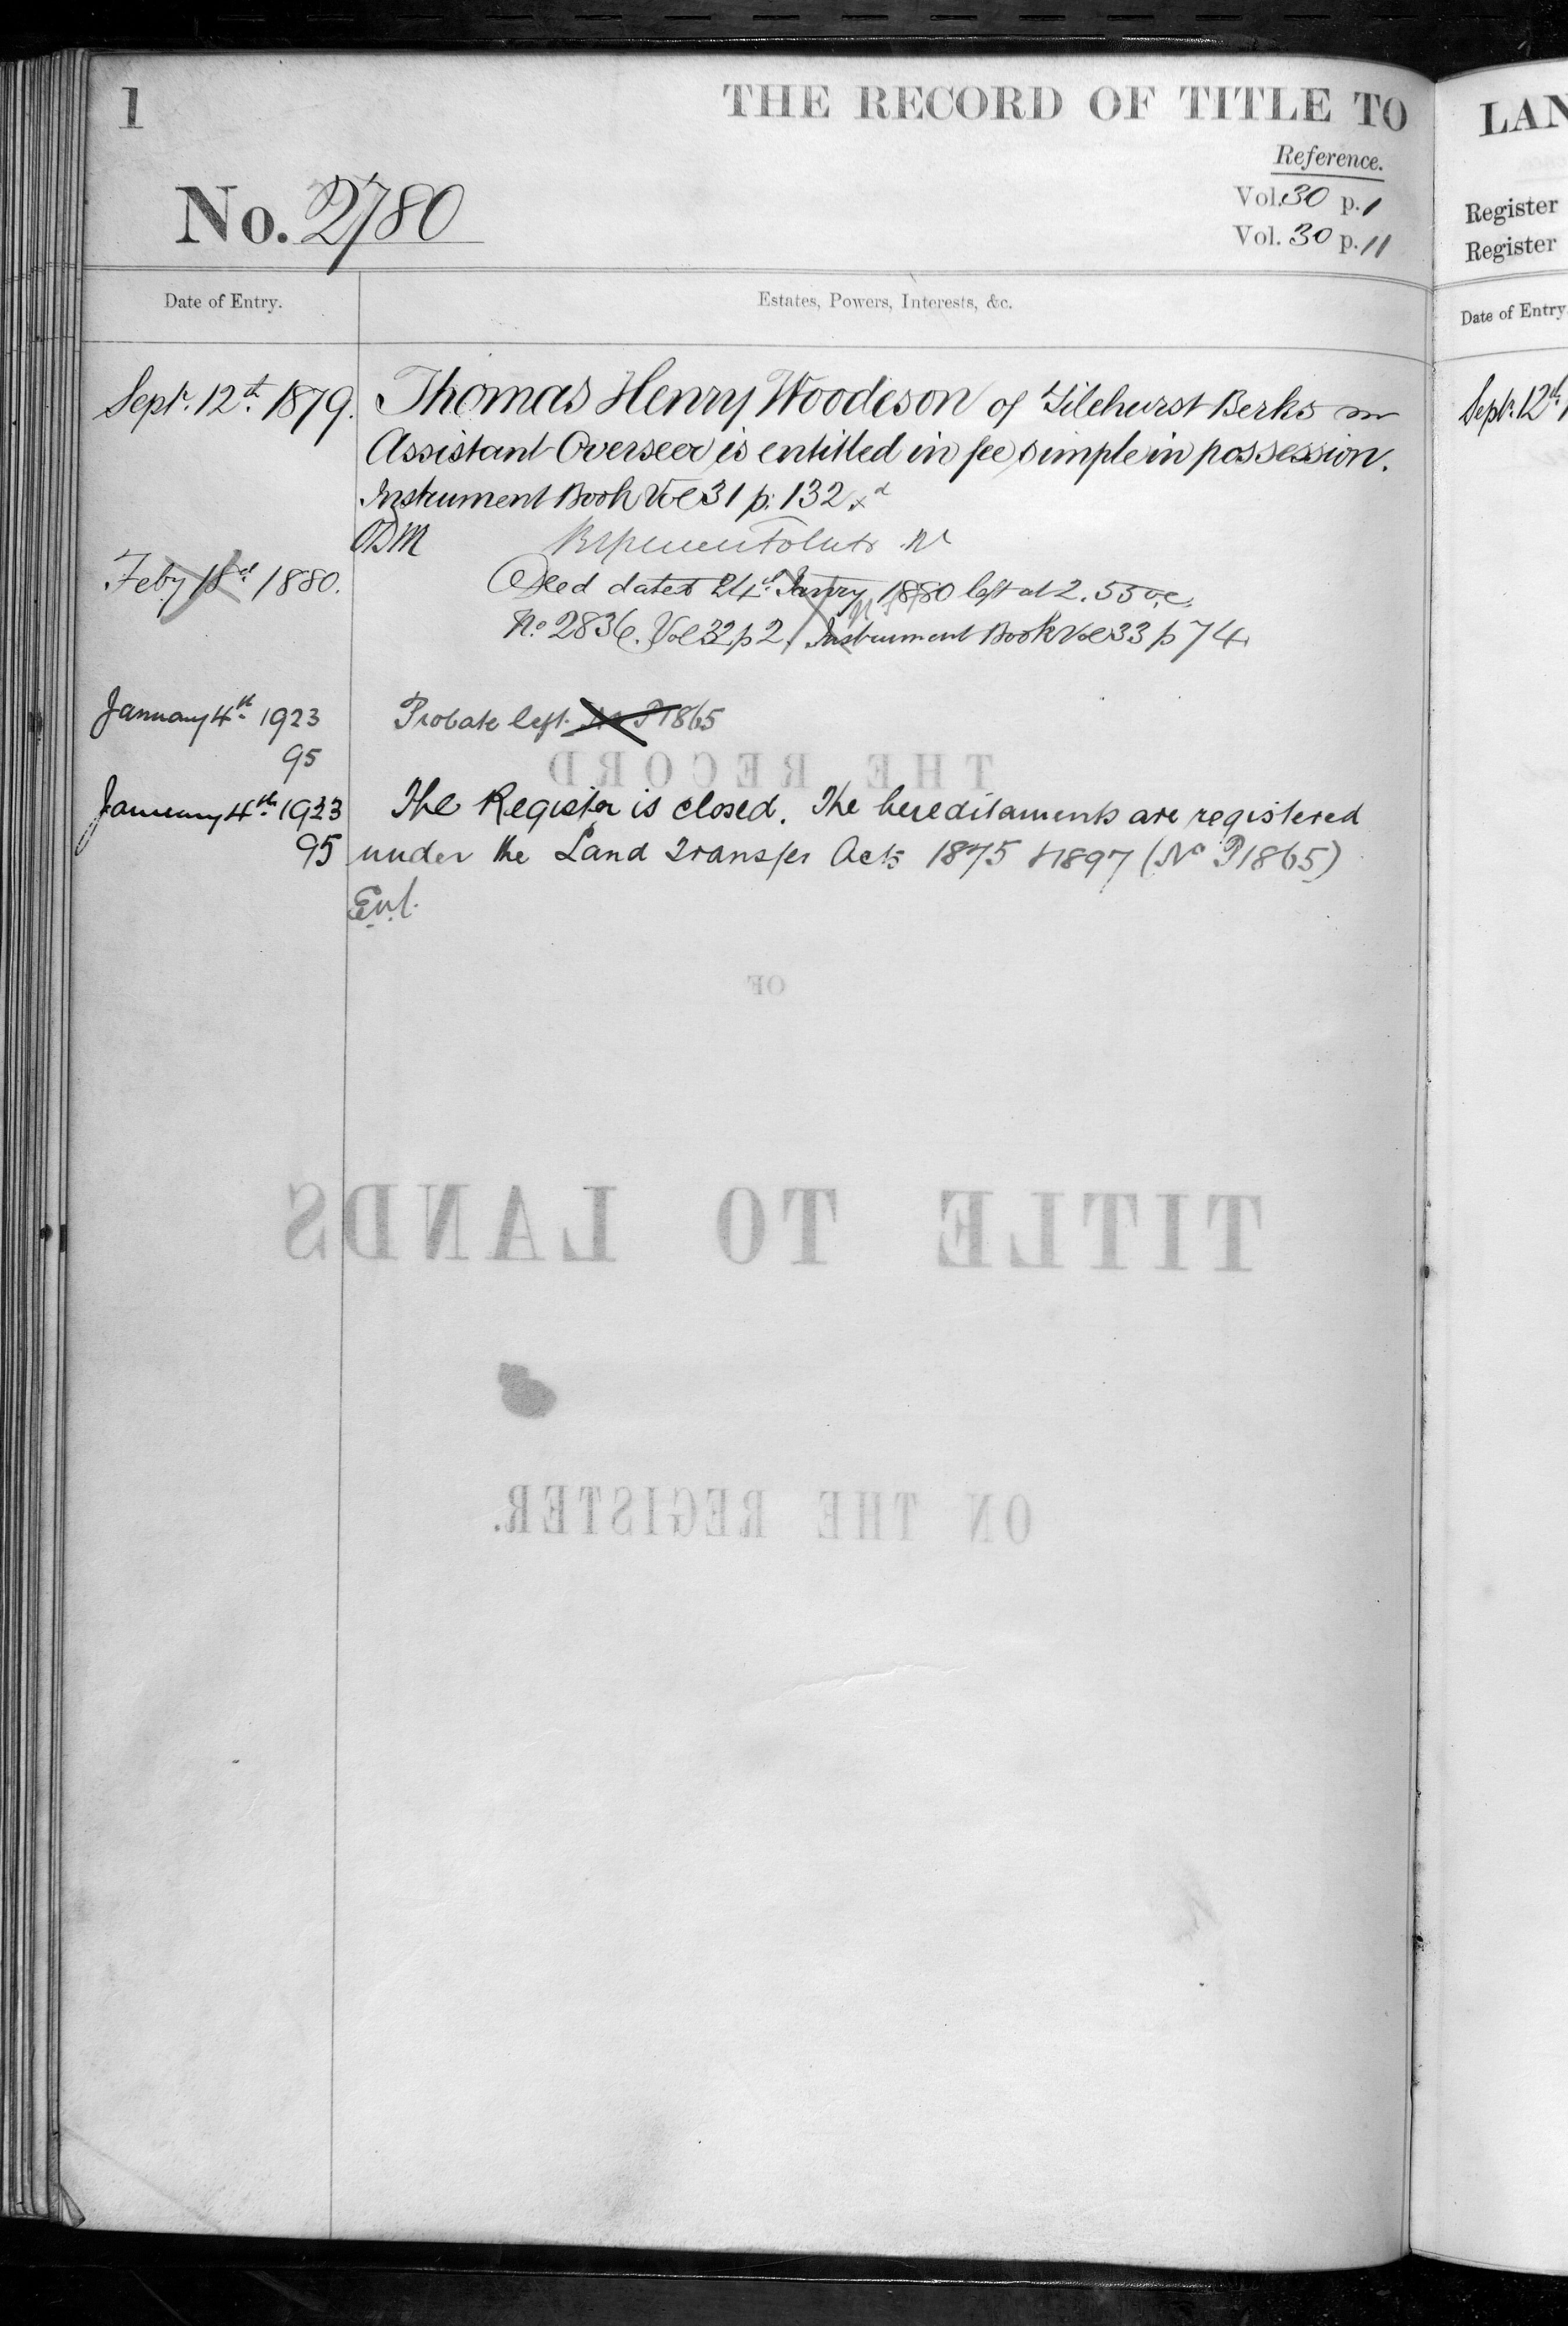 1
THE RECORD OF TITLE TO
Reference.
No. 2780
Vol. 30 p. 1
Vol. 30 p. 11
Date of Entry.
Estates, Powers, Interests, &c.
Sept. 12th. 1879. Thomas Henry Woodeson of Tilehurst Berks
Assistant Overseer is entitled in fee simple in possession.
Instrument Book Vol 31 p. 132
Feby 18th 1880.
Deed dated 24th Janry 1880 left at 2.55
No 2836. Vol 32 p 2. Instrument Book Vol 33 p 74
January 4th 1923 Probate left. No P1865
95
THE RECORD
January 4th 1923 The Register is closed. The hereditaments are registered
95 under the Land Transfer Acts 1875 & 1897 (No P1865)
OF
TITLE TO LANDS
ON THE REGISTER.
LAN
Register
Register
Date of Entry
Sept. 12th